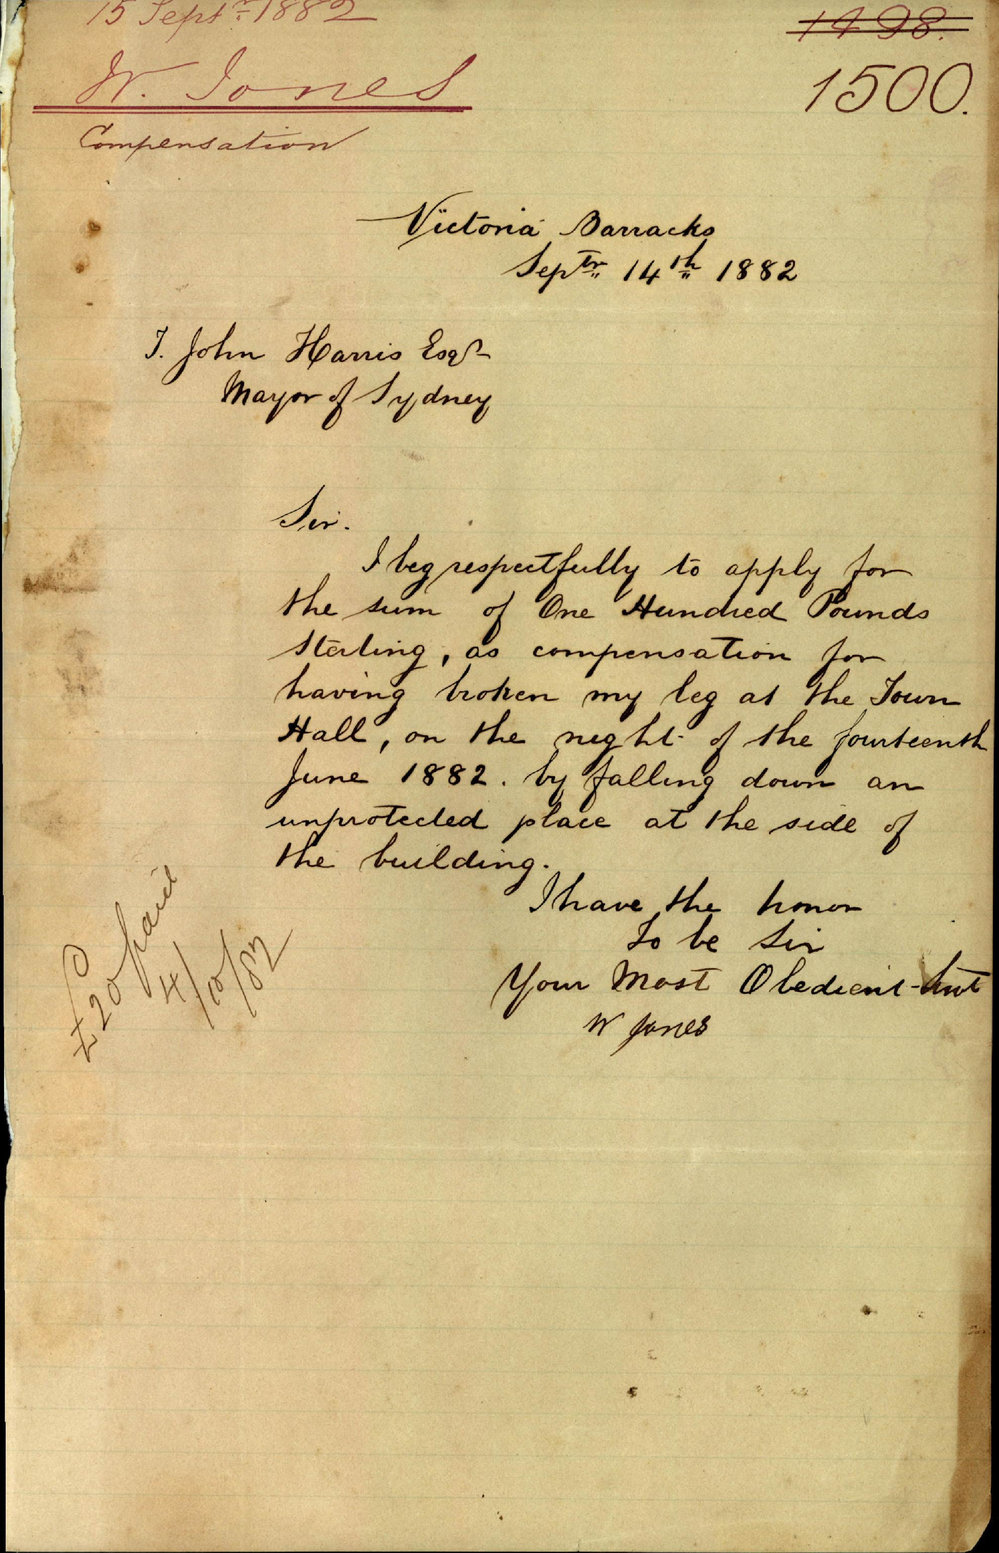 15 Septr. 1882
1498.
W. Jones
1500.
Compensation
Victoria Barracks
Septr. 14th 1882
T. John Harris Esqr
Mayor of Sydney
Sir.
I beg respectfully to apply for
the sum of One Hundred Pounds
Sterling, as compensation for
having broken my leg at the Town
Hall, on the night of the fourteenth
June 1882. by falling down an
unprotected place at the side of
the building.
I have the honor
To be Sir
Your Most Obedient Svt
W Jones
£20 paid
4/10/82